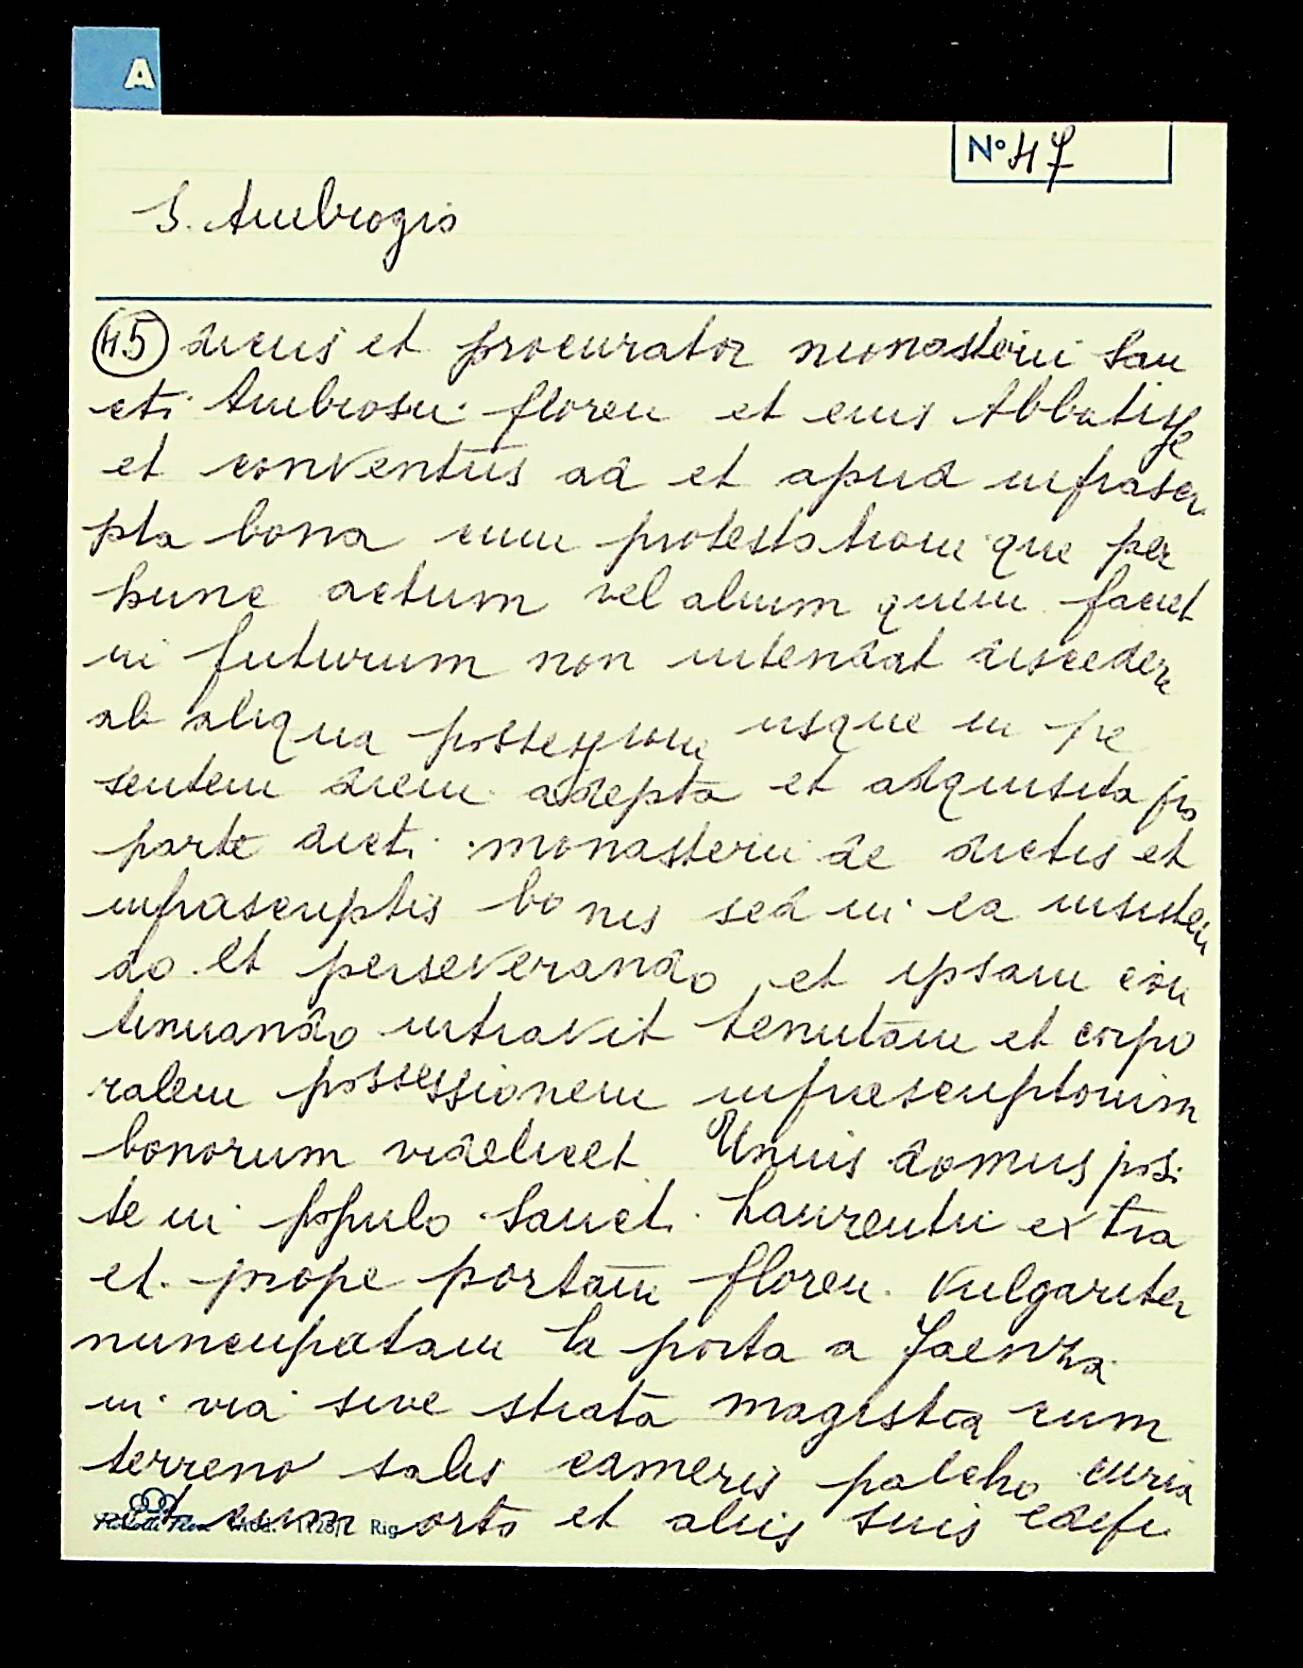 A
N° 47
S. Ambrogio
45 dicus et procurator monasterii San
cti Ambrosii floren et eius Abbatisse
et conventus ad et apud infrascri
pta bona cum protestatione que per
hunc actum vel alium quem faciet
in futurum non intendat discedere
ab aliqua possessione usque in pre
sentem diem adepta et adquisita pro
parte dicti monasterii de dictis et
infrascriptis bonis sed in ea insisten
do et perseverando et ipsam con
tinuando intravit tenutam et corpo
ralem possessionem infrascriptorum
bonorum videlicet Unius domus posi
te in populo Sancti Laurentii extra
et prope portam floren. vulgariter
nuncupatam la porta a Faenza
in via sive strata magistra cum
terreno salis cameris palcho curia
et cum orto et aliis suis edifi